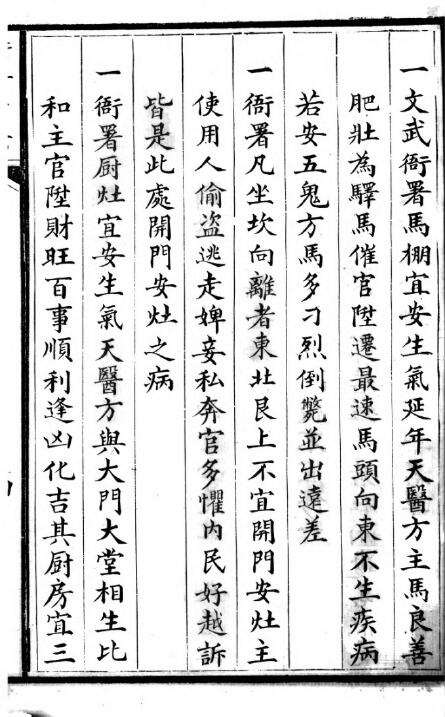 一文武衙署馬棚宜安生氣延年天醫方主馬良善
肥壯為驛馬催官陞遷最速馬頭向東不生疾病
若安五鬼方馬多刁烈倒斃並出遠差
一衙署凡坐坎向離者東北艮上不宜開門安灶主
使用人偷盜逃走婢妾私奔官多懼内民好越訴
皆是此處開門安灶之病
一衙署厨灶宜安生氣天醫方與大門大堂相生比
和主官陞財旺百事順利逢凶化吉其厨房宜三